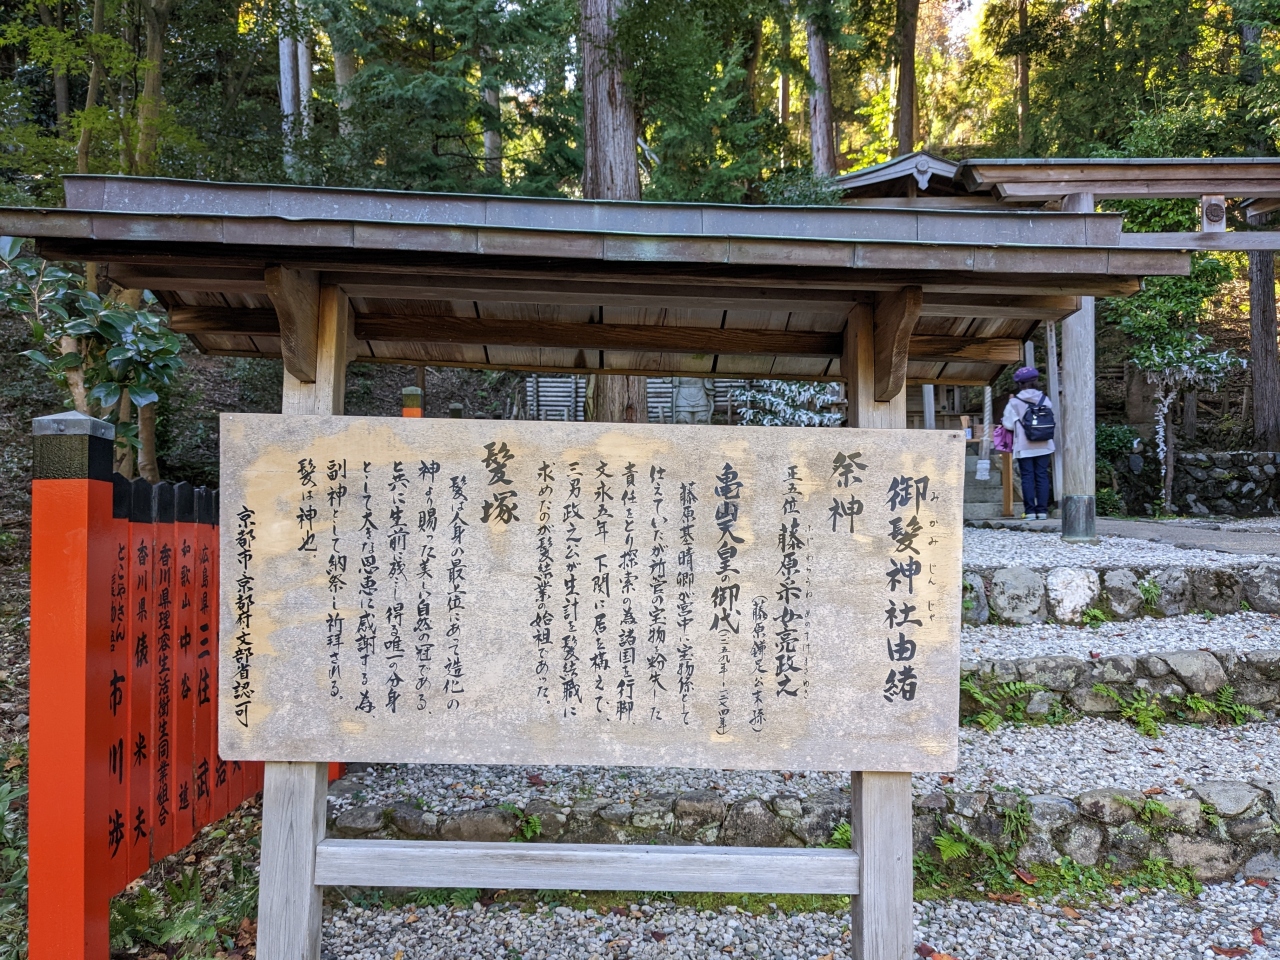 御髪神社由緒
みかみじんじゃ
祭神
正五位 藤原采女亮政之
ふじわらうねめのすけまさゆき
(藤原鎌足公末孫)
亀山天皇の御代(一二五九年~一二七四年)
藤原基晴卿が宮中に宝物係として
仕えていたが所管の宝物を紛失した
責任をとり探索の為諸国を行脚
文永五年 下関に居を構えて、
三男政之公が生計を髪結職に
求めたのが髪結業の始祖であった。
髪塚
髪は人身の最上位にあって造化の
神より賜った美しい自然の冠である、
共に生前に残し得る唯一の分身
として大きな恩恵に感謝する為、
副神として納祭し祈拝される。
髪は神也。
京都市・京都府文部省認可
広島県 三住 武
和歌山 中谷 進
香川県理容生活衛生同業組合
香川県 俵 米夫
とこやさん 市川 渉